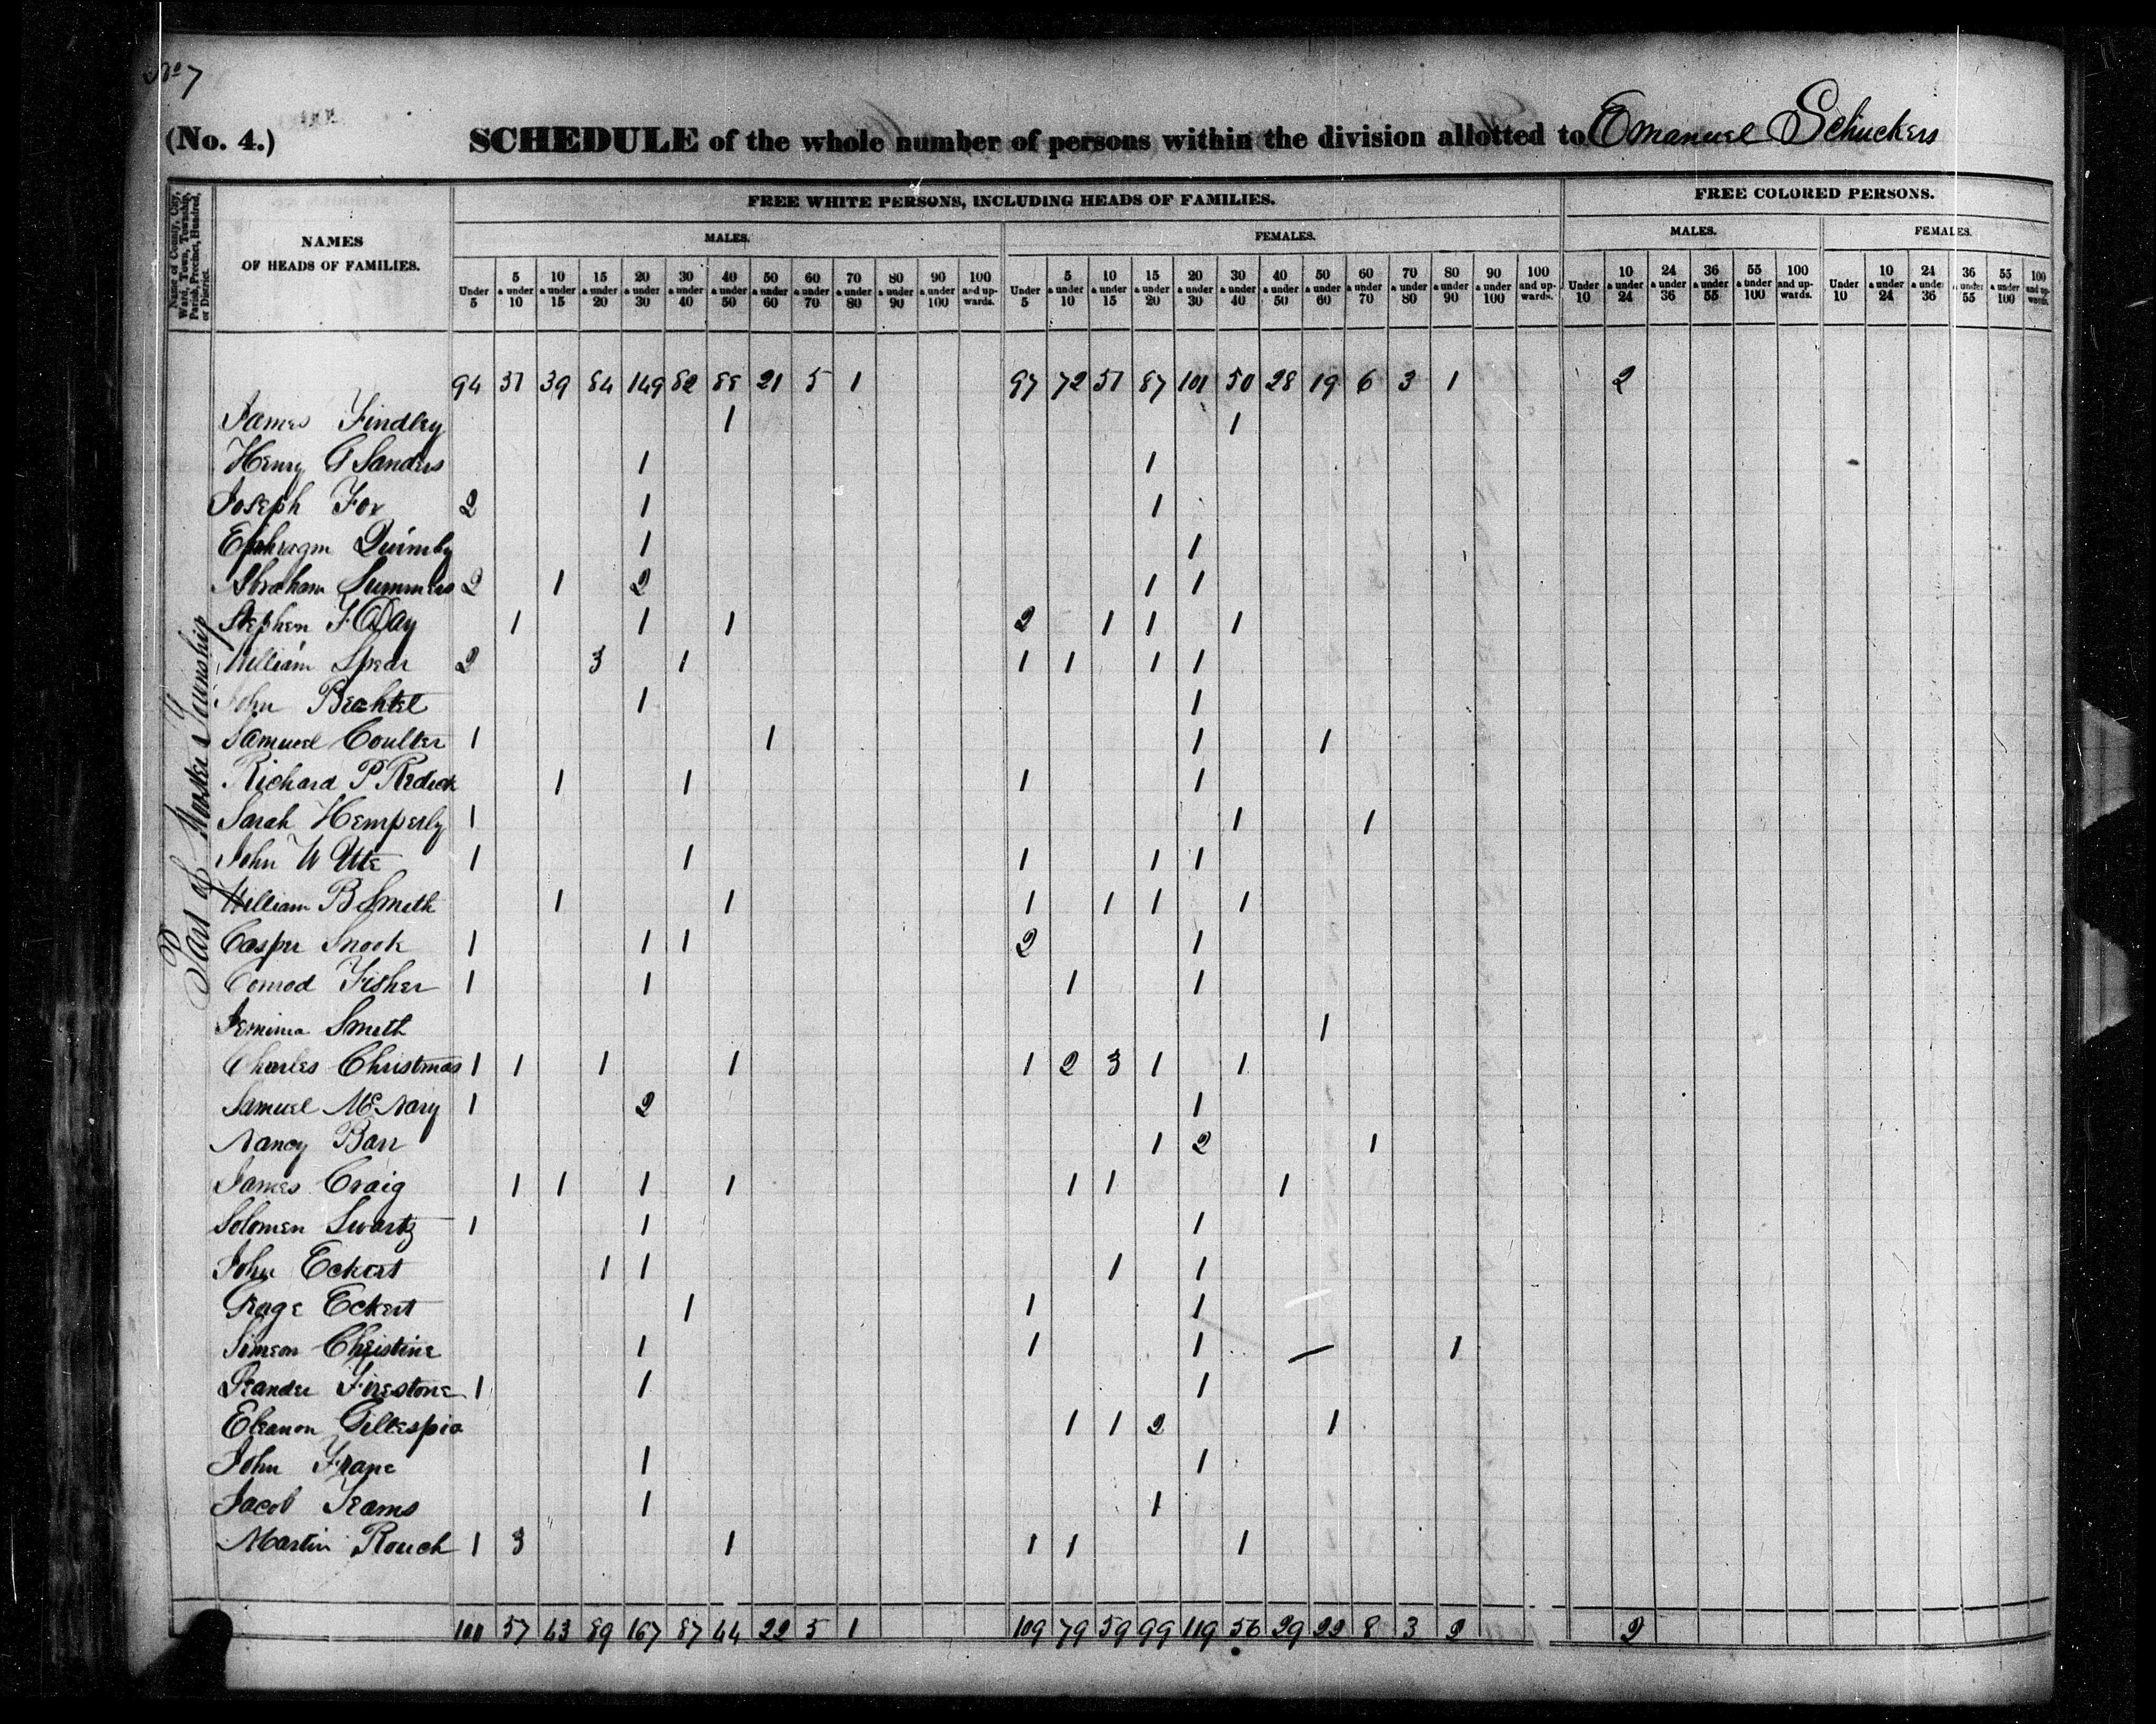 No 7
(No. 4.) SCHEDULE of the whole number of persons within the division allotted to Emanuel Schuckers
Name of County, City, Ward, Town, Township, Parish, Precinct, Hundred, or District.
NAMES OF HEADS OF FAMILIES.
FREE WHITE PERSONS, INCLUDING HEADS OF FAMILIES.
FREE COLORED PERSONS.
MALES. FEMALES. MALES. FEMALES.
Under 5 5 & under 10 10 & under 15 15 & under 20 20 & under 30 30 & under 40 40 & under 50 50 & under 60 60 & under 70 70 & under 80 80 & under 90 90 & under 100 100 and upwards. Under 5 5 & under 10 10 & under 15 15 & under 20 20 & under 30 30 & under 40 40 & under 50 50 & under 60 60 & under 70 70 & under 80 80 & under 90 90 & under 100 100 and upwards. Under 10 10 & under 24 24 & under 36 36 & under 55 55 & under 100 100 and upwards. Under 10 10 & under 24 24 & under 36 36 & under 55 55 & under 100 100 and upwards.
Part of Township
94 39 84 149 82 21 5 1 97 72 51 87 101 50 28 19 6 3 1 2
James Findley 1 1
Henry G Sanders 1 1
Joseph Fox 2 1 1
Ephragm Quimby 1 1
Abraham Summers 2 1 2 1 1
Stephen F Day 1 1 1 2 1 1 1
William Spear 2 3 1 1 1 1 1
John Bechtel 1 1
Samuel Coulter 1 1 1 1
Richard P Redick 1 1 1 1
Sarah Hemperly 1 1 1
John W Utte 1 1 1 1 1
William B Smith 1 1 1 1 1 1
Casper Snook 1 1 1 2 1
Conrod Fisher 1 1 1 1
Jemima Smith 1
Charles Christmas 1 1 1 1 1 2 3 1 1
Samuel McNary 1 2 1
Nancy Barr 1 2 1
James Craig 1 1 1 1 1 1 1
Solomen Swartz 1 1 1
John Eckert 1 1 1 1
Geoge Eckert 1 1 1
Simeon Christine 1 1 1 1
Leander Firestone 1 1 1
Eleanor Gillespie 1 1 2 1
John Frane 1 1
Jacob 1 1
Martin Rouch 1 3 1 1 1 1
57 43 89 167 87 44 22 5 1 109 79 59 99 119 56 29 22 8 3 2 2